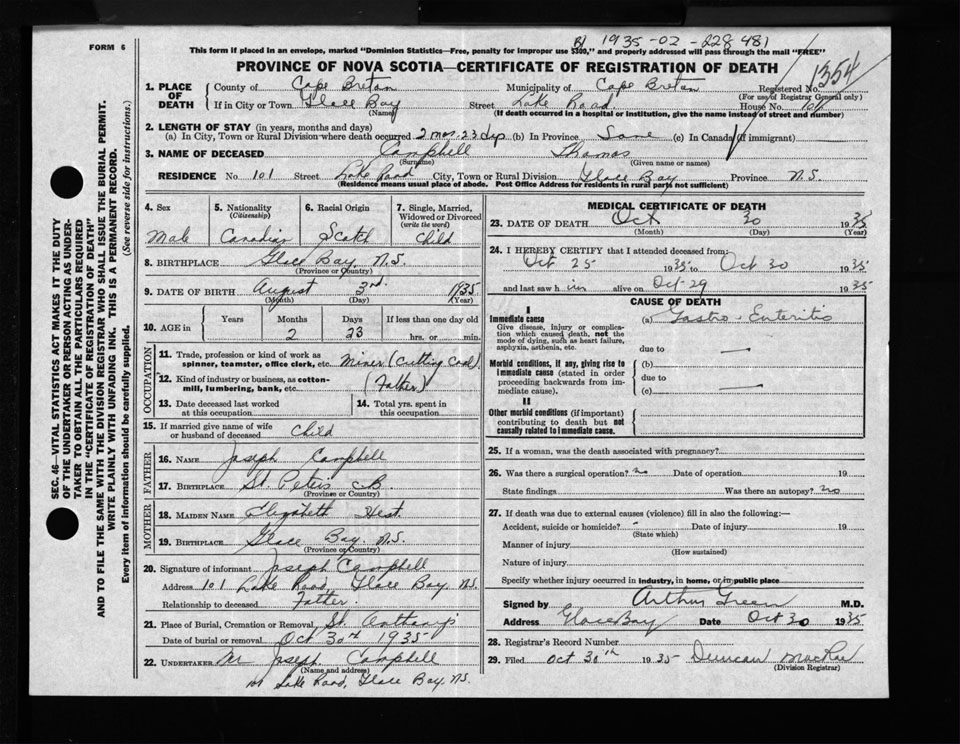 FORM 6
BJ 1935-02-228481
This form if placed in an envelope, marked "Dominion Statistics—Free, penalty for improper use $300," and properly addressed will pass through the mail "FREE"
PROVINCE OF NOVA SCOTIA—CERTIFICATE OF REGISTRATION OF DEATH
1354
1. PLACE OF DEATH
County of Cape Breton Municipality of Cape Breton Registered No.
(For use of Registrar General only)
If in City or Town Glace Bay Street Lake Road House No. 101
(Name) (If death occurred in a hospital or institution, give the name instead of street and number)
2. LENGTH OF STAY (in years, months and days)
(a) In City, Town or Rural Division where death occurred 2 mos. 23 dys (b) In Province Same (c) In Canada (if immigrant)
3. NAME OF DECEASED Campbell Thomas
(Surname) (Given name or names)
RESIDENCE No. 101 Street Lake Road City, Town or Rural Division Glace Bay Province N.S.
(Residence means usual place of abode. Post Office Address for residents in rural parts not sufficient)
4. Sex Male
5. Nationality (Citizenship) Canadian
6. Racial Origin Scotch
7. Single, Married, Widowed or Divorced (write the word) Child
8. BIRTHPLACE Glace Bay, N.S.
(Province or Country)
9. DATE OF BIRTH August 3rd 1935
(Month) (Day) (Year)
10. AGE in Years Months Days If less than one day old
2 23 hrs. or min.
OCCUPATION
11. Trade, profession or kind of work as spinner, teamster, office clerk, etc. Miner (Cutting Coal)
12. Kind of industry or business, as cotton-mill, lumbering, bank, etc. (Father)
13. Date deceased last worked at this occupation
14. Total yrs. spent in this occupation
15. If married give name of wife or husband of deceased Child
FATHER
16. NAME Joseph Campbell
17. BIRTHPLACE St. Peters C.B.
(Province or Country)
MOTHER
18. MAIDEN NAME Elizabeth
19. BIRTHPLACE Glace Bay. N.S.
(Province or Country)
20. Signature of informant Joseph Campbell
Address 101 Lake Road, Glace Bay N.S.
Relationship to deceased Father.
21. Place of Burial, Cremation or Removal St. Anthony's
Date of burial or removal Oct 30th 1935
22. UNDERTAKER Mr Joseph Campbell
(Name and address)
101 Lake Road, Glace Bay. N.S.
MEDICAL CERTIFICATE OF DEATH
23. DATE OF DEATH Oct 30 1935
(Month) (Day) (Year)
24. I HEREBY CERTIFY that I attended deceased from:
Oct 25 1935 to Oct 30 1935
and last saw him alive on Oct 29 1935
CAUSE OF DEATH
I
Immediate cause
Give disease, injury or complication which caused death, not the mode of dying, such as heart failure, asphyxia, asthenia, etc.
(a) Gastro-Enteritis
due to —
Morbid conditions, if any, giving rise to immediate cause (stated in order proceeding backwards from immediate cause).
(b)
due to
(c)
II
Other morbid conditions (if important) contributing to death but not causally related to immediate cause.
25. If a woman, was the death associated with pregnancy?
26. Was there a surgical operation? no Date of operation 19
State findings Was there an autopsy? no
27. If death was due to external causes (violence) fill in also the following:—
Accident, suicide or homicide? - Date of injury 19
(State which)
Manner of injury
(How sustained)
Nature of injury
Specify whether injury occurred in industry, in home, or in public place
Signed by Arthur Green M.D.
Address Glace Bay Date Oct 30 1935
28. Registrar's Record Number
29. Filed Oct 30th 1935 Duncan MacRae
(Division Registrar)
SEC. 46—VITAL STATISTICS ACT MAKES IT THE DUTY
OF THE UNDERTAKER OR PERSON ACTING AS UNDER-
TAKER TO OBTAIN ALL THE PARTICULARS REQUIRED
IN THE "CERTIFICATE OF REGISTRATION OF DEATH"
AND TO FILE THE SAME WITH THE DIVISION REGISTRAR WHO SHALL ISSUE THE BURIAL PERMIT.
WRITE PLAINLY WITH UNFADING INK. THIS IS A PERMANENT RECORD.
Every item of information should be carefully supplied. (See reverse side for instructions.)